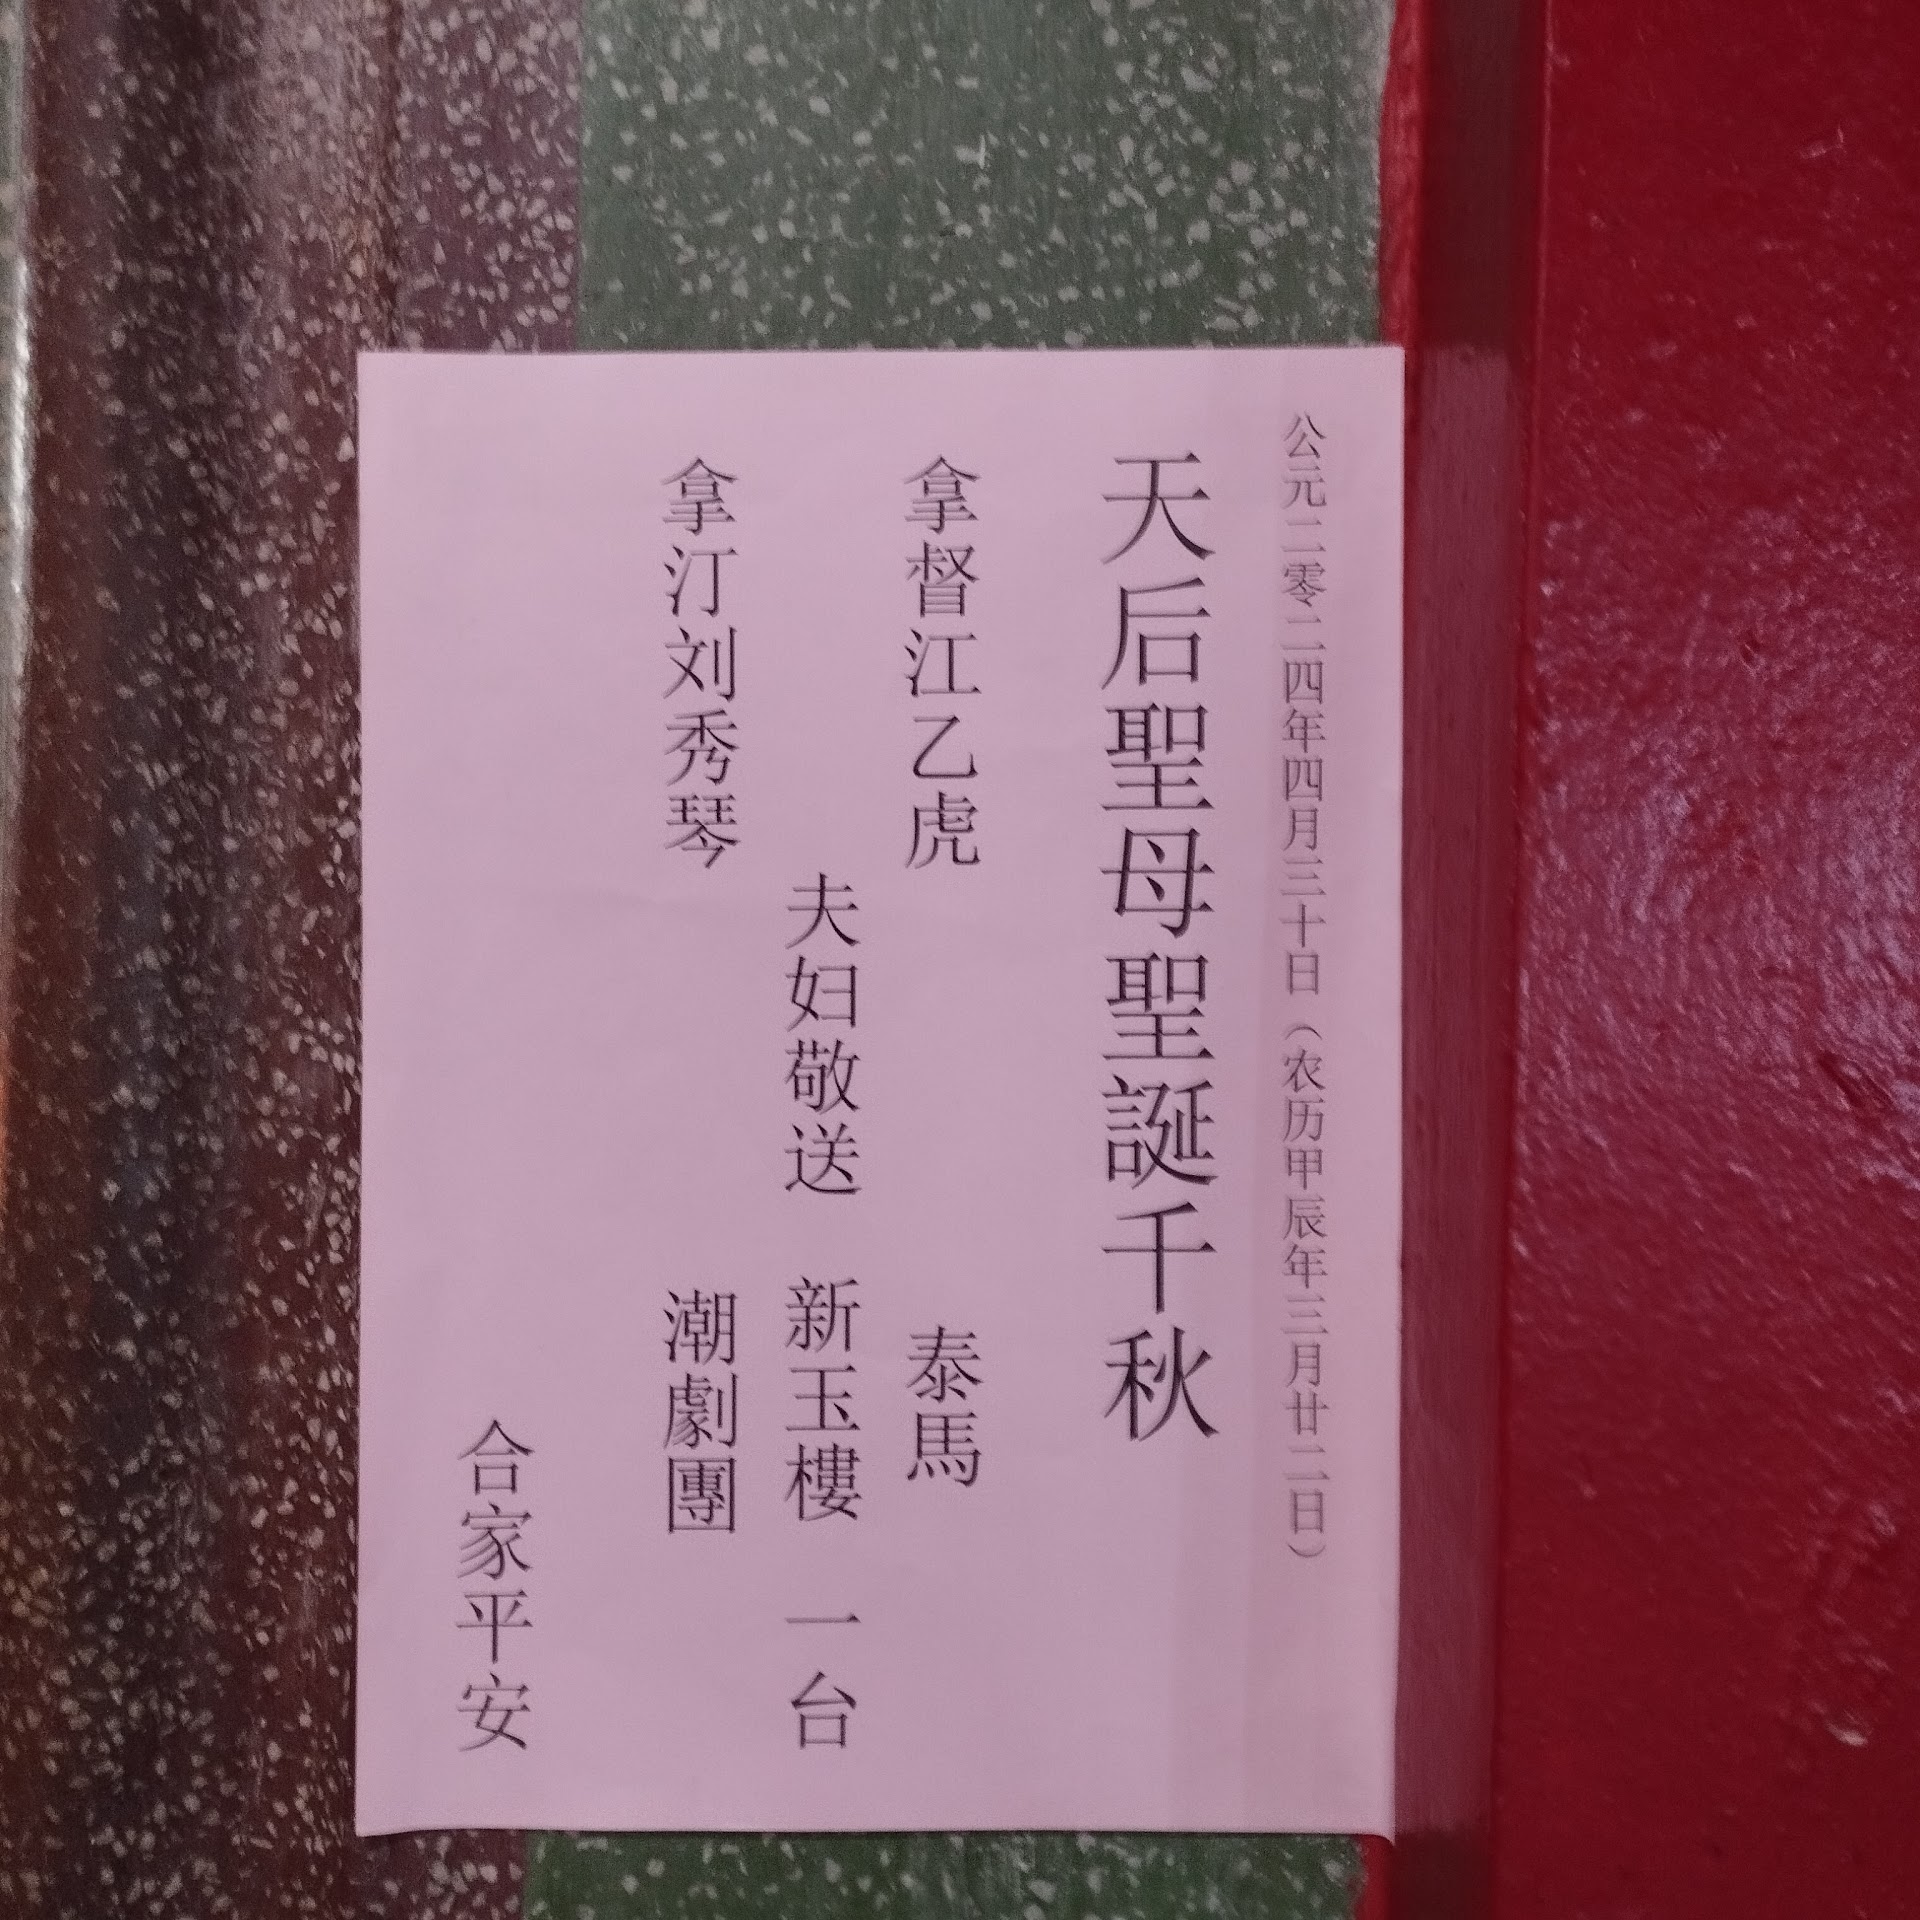 公元二零二四年四月三十日（农历甲辰年三月廿二日）
天后聖母聖誕千秋
拿督江乙虎
泰馬
夫妇敬送
新玉樓
一台
拿汀刘秀琴
潮劇團
合家平安